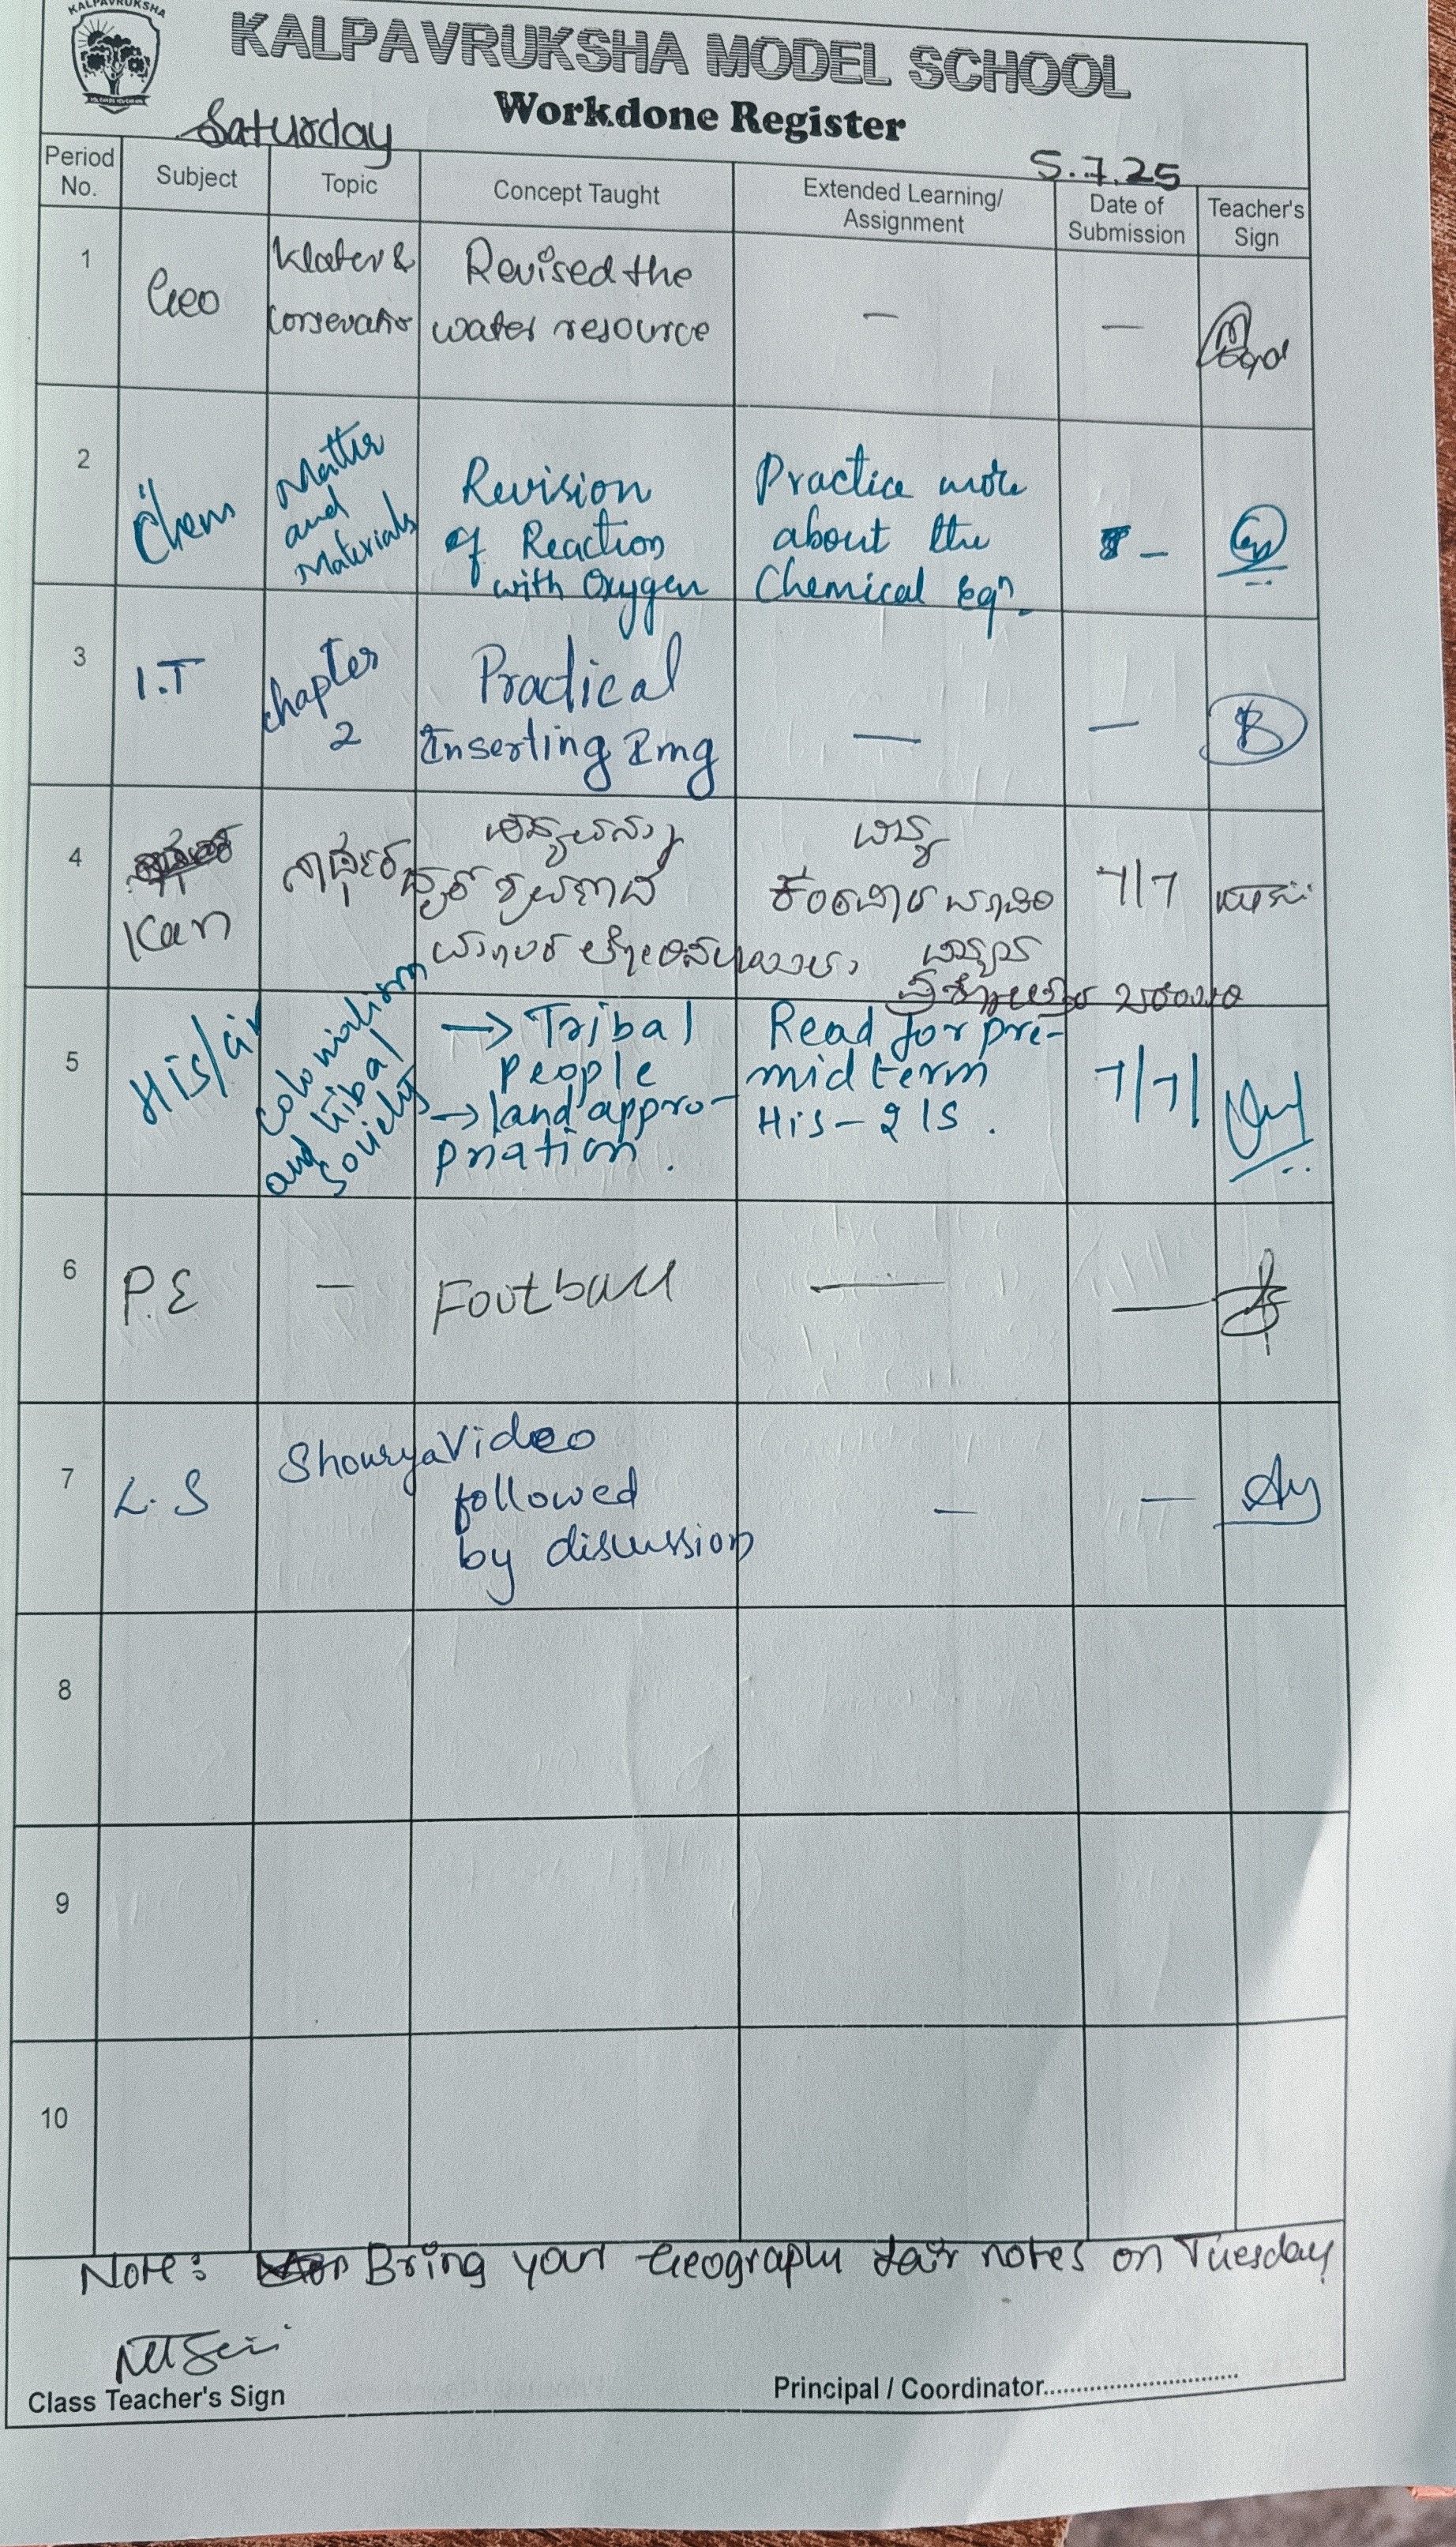 KALPAVRUKSHA
KALPAVRUKSHA MODEL SCHOOL
Workdone Register
Saturday
5.7.25
Period No.
Subject
Topic
Concept Taught
Extended Learning/
Assignment
Date of
Submission
Teacher's
Sign
1
Geo
Water &
Consevatio
Revised the
water resource
—
—
2
Chem
Matter
and
Materials
Revision
of Reaction
with Oxygen
Practice more
about the
Chemical Eqn.
-
3
I.T
Chapter
2
Practical
Inserting Img
—
—
4
Kan
7/7
5
His/civ
Colonialism
and tribal
society
→ Tribal
people
→ land appro-
priation.
Read for pre-
midterm
His-2 LS.
7/7/
6
P.E
—
Football
—
—
7
L.S
Shourya Video
followed
by discussion
—
—
8
9
10
Note: Bring your Geography fair notes on Tuesday
Class Teacher's Sign
Principal / Coordinator